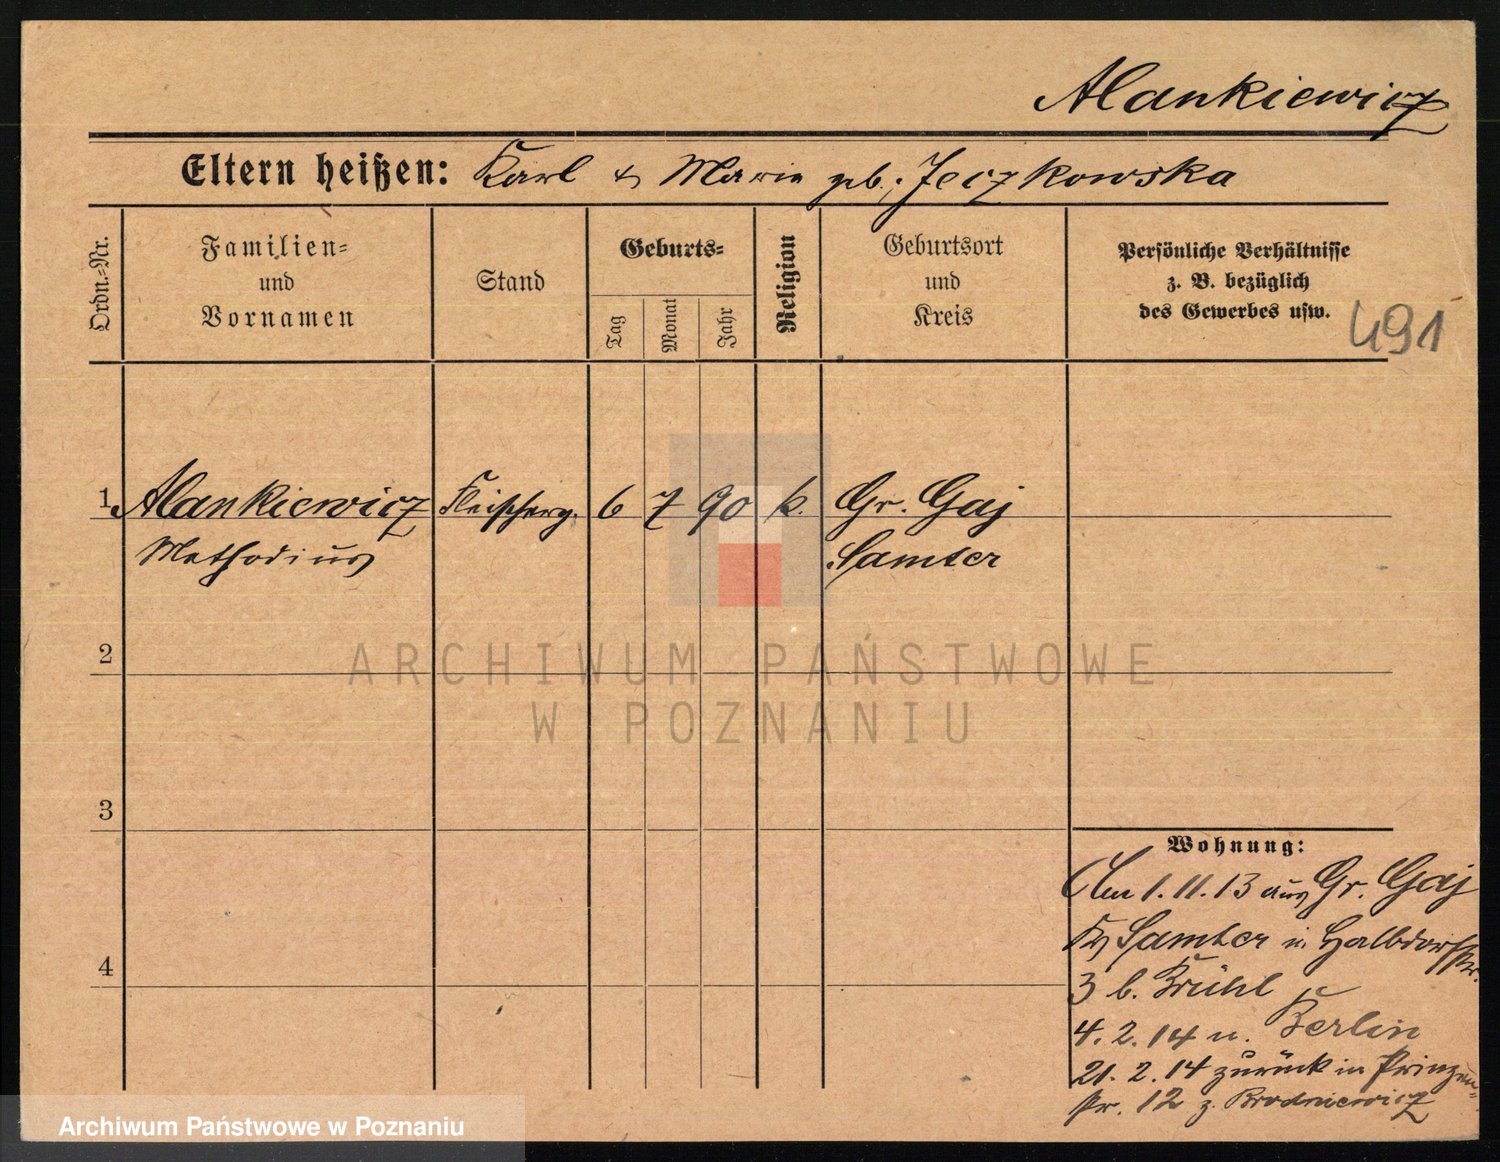 Alankiewicz
Eltern heißen: Karl & Marie geb. Jeczkowska
Ordn.-Nr.
Familien-
und
Vornamen
Stand
Geburts-
Tag
Monat
Jahr
Religion
Geburtsort
und
Kreis
Persönliche Verhältnisse
z. B. bezüglich
des Gewerbes usw.
491
1 Alankiewicz Fleischerg. 6 7 90 k. Gr. Gaj
Methodius Samter
2
3
4
Wohnung:
Am 1.11.13 aus Gr. Gaj
Samter in Halbdorfstr.
3 b. Krühl
4.2.14 n. Berlin
21.2.14 zurück in Prinzen-
str. 12 z. Brodniewicz
ARCHIWUM PAŃSTWOWE
W POZNANIU
Archiwum Państwowe w Poznaniu